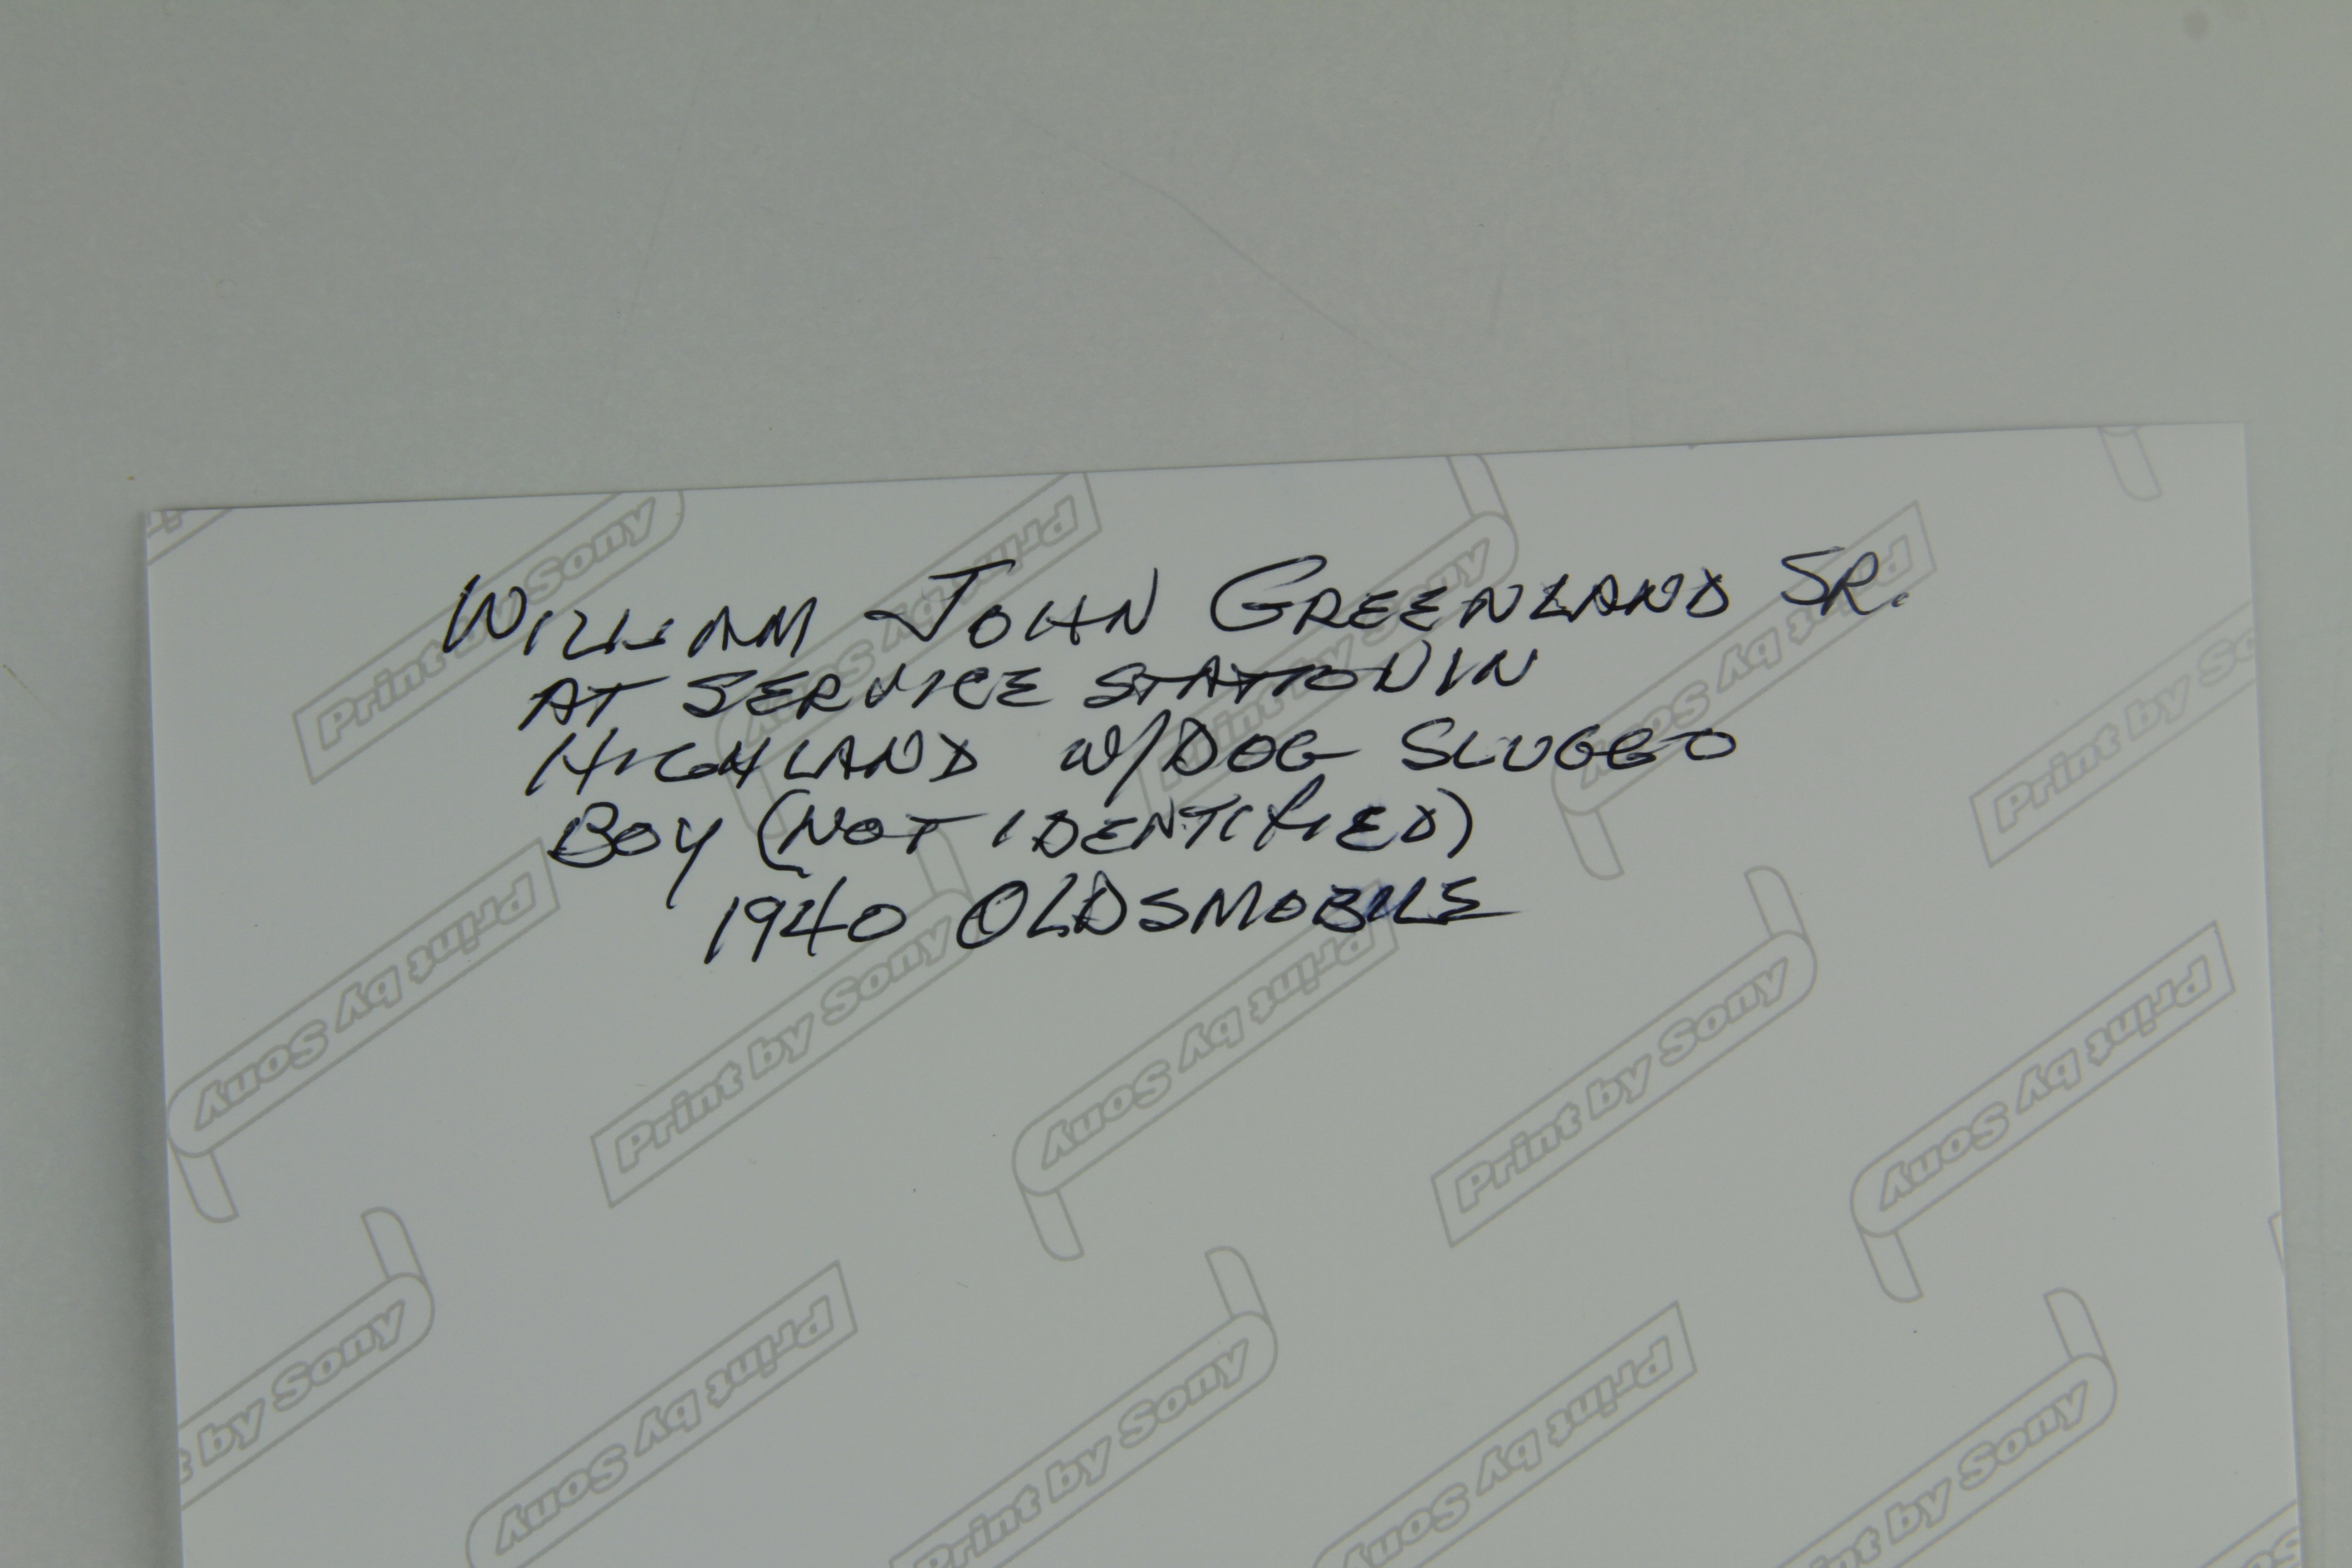 WILLIAM JOHN GREENLAND SR.
AT SERVICE STATION IN
HIGHLAND W/DOG SLUGGO
BOY (NOT IDENTIFIED)
1940 OLDSMOBILE
Print by Sony
Print by Sony
Print by Sony
Print by Sony
Print by Sony
Print by So
Print by Sony
Print by Sony
Print by Sony
Print by Sony
Print by Sony
t by Sony
Print by Sony
Print by Sony
Print by Sony
Print by Sony